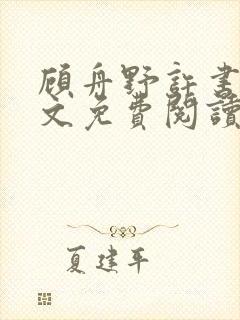 顾舟野許書
文免費閱讀
夏建平